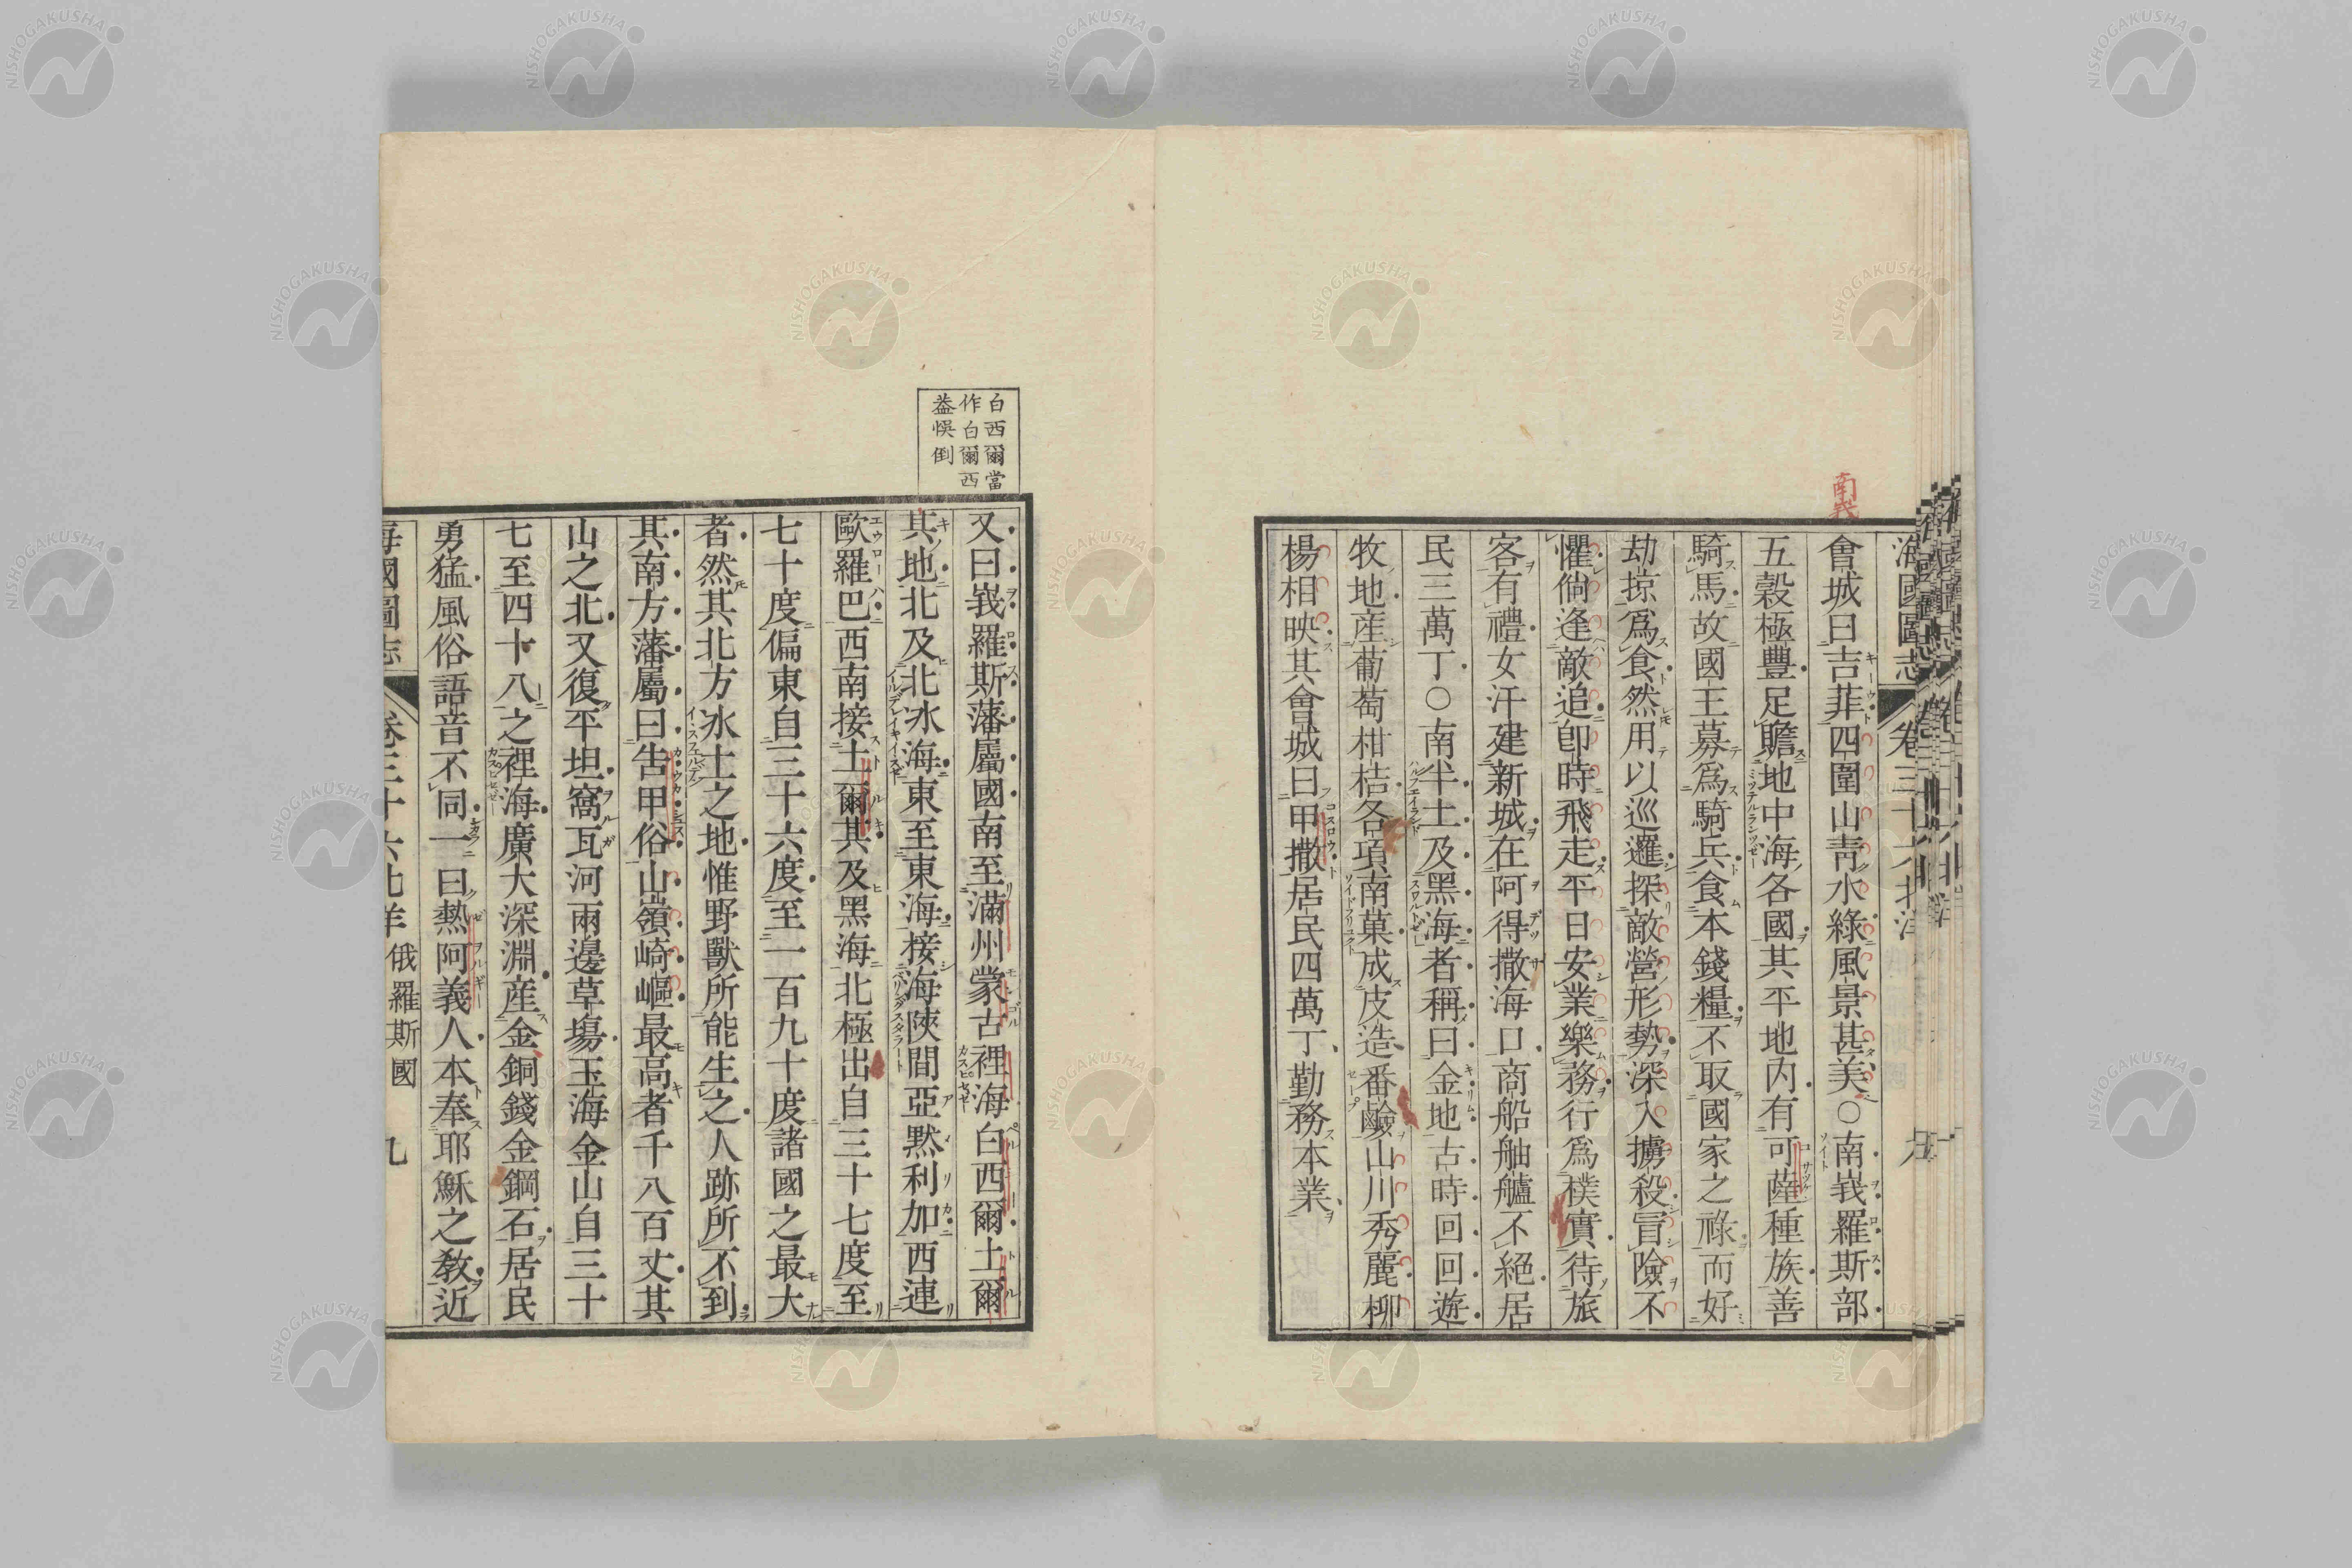 南峩
海國圖志 卷三十六 北洋
會城曰吉菲四圍山青水綠風景甚美○南峩羅斯部
五穀極豐足贍地中海各國其平地內有可薩種族善
騎馬故國王募爲騎兵食本錢糧不取國家之祿而好
劫掠爲食然用以巡邏探敵營形勢深入擄殺冒險不
懼倘逢敵追卽時飛走平日安業樂務行爲樸實待旅
客有禮女汗建新城在阿得撒海口商船舳艫不絕居
民三萬丁○南半土及黑海者稱曰金地古時回回遊
牧地產葡萄柑桔各項南菓成皮造番鹼山川秀麗柳
楊相映其會城曰甲撒居民四萬丁勤務本業
白西爾當
作白爾西
葢悞倒
又曰峩羅斯藩屬國南至滿州蒙古裡海白西爾土爾
其地北及北氷海東至東海接海陝間亞黙利加西連
歐羅巴西南接土爾其及黑海北極出自三十七度至
七十度偏東自三十六度至一百九十度諸國之最大
者然其北方氷土之地惟野獸所能生之人跡所不到
其南方藩屬曰告甲俗山嶺崎嶇最高者千八百丈其
山之北又復平坦窩瓦河兩邊草塲玉海金山自三十
七至四十八之裡海廣大深淵産金銅錢金鋼石居民
勇猛風俗語音不同一曰熱阿義人本奉耶穌之教近
海國圖志 卷三十六 北洋 俄羅斯國 九